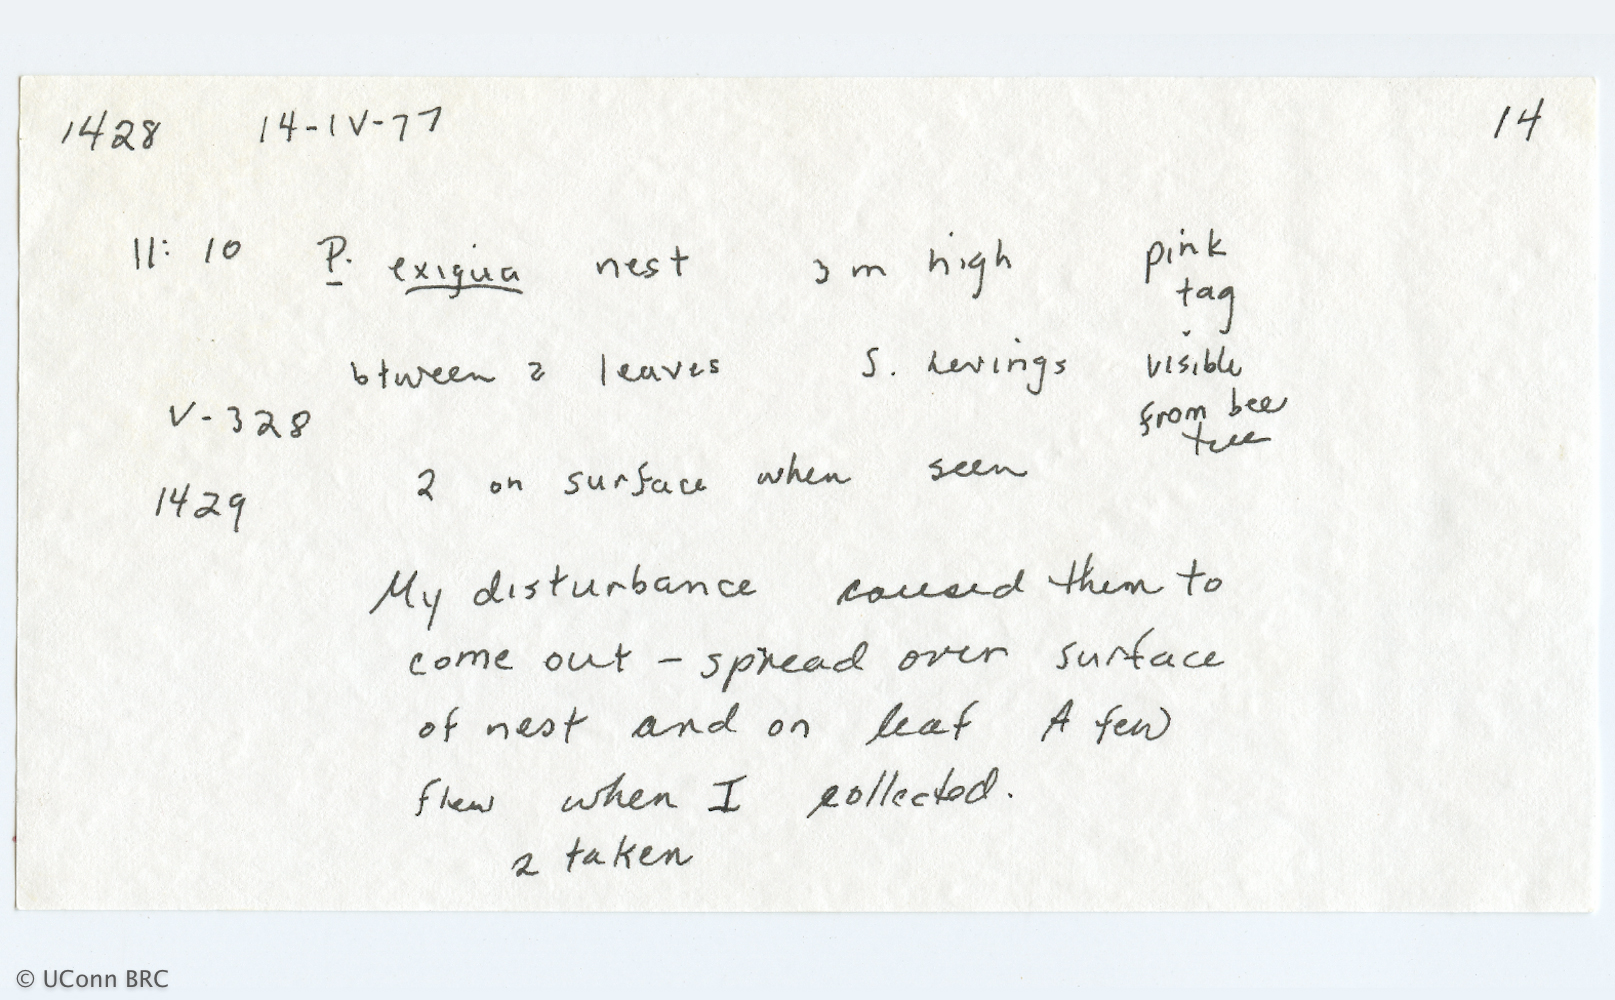 1428 14-IV-77 14
11: 10 P. exigua nest 3 m high pink
tag
btween 2 leaves S. Levings visible
V-328 from bee
tree
1429 2 on surface when seen
My disturbance caused them to
come out – spread over surface
of nest and on leaf A few
flew when I collected.
2 taken
© UConn BRC